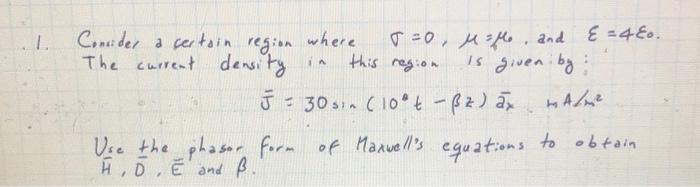 1. Consider a certain region where σ = 0, μ = μ₀, and ε = 4ε₀.
The current density in this region is given by:
J̄ = 30 sin (10⁸t - βz) āₓ mA/m²
Use the phasor form of Maxwell's equations to obtain
H̄, D̄, Ē and β.